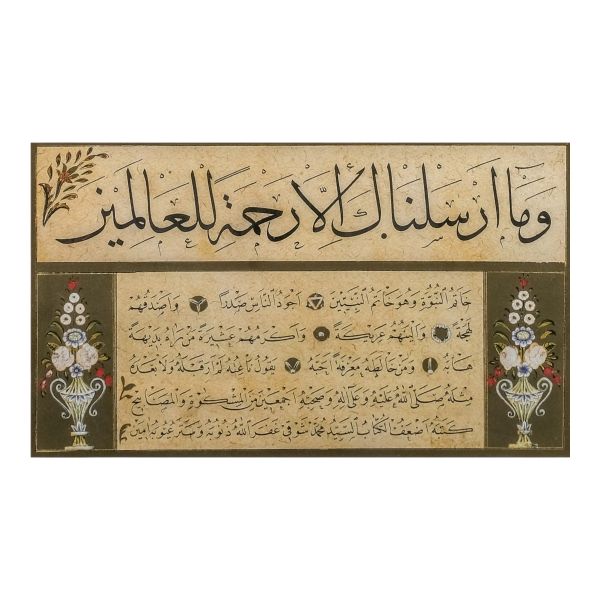 وَمَا أَرْسَلْنَاكَ إِلَّا رَحْمَةً لِلْعَالَمِينَ
خَاتَمُ النُّبُوَّةِ وَهُوَ خَاتَمُ النَّبِيِّينَ أَجْوَدُ النَّاسِ صَدْرًا وَأَصْدَقُهُمْ
لَهْجَةً وَأَلْيَنُهُمْ عَرِيكَةً وَأَكْرَمُهُمْ عَشِيرَةً مَنْ رَآهُ بَدِيهَةً
هَابَهُ وَمَنْ خَالَطَهُ مَعْرِفَةً أَحَبَّهُ يَقُولُ نَاعِتُهُ لَمْ أَرَ قَبْلَهُ وَلَا بَعْدَهُ
مِثْلَهُ صَلَّى اللهُ عَلَيْهِ وَعَلَى آلِهِ وَصَحْبِهِ أَجْمَعِينَ مِنَ الْمِشْكَوةِ وَالْمَصَابِيحِ
كَتَبَهُ أَضْعَفُ الْكُتَّابِ السَّيِّدُ مُحَمَّد شَوْقِي غَفَرَ اللهُ ذُنُوبَهُ وَسَتَرَ عُيُوبَهُ آمِين